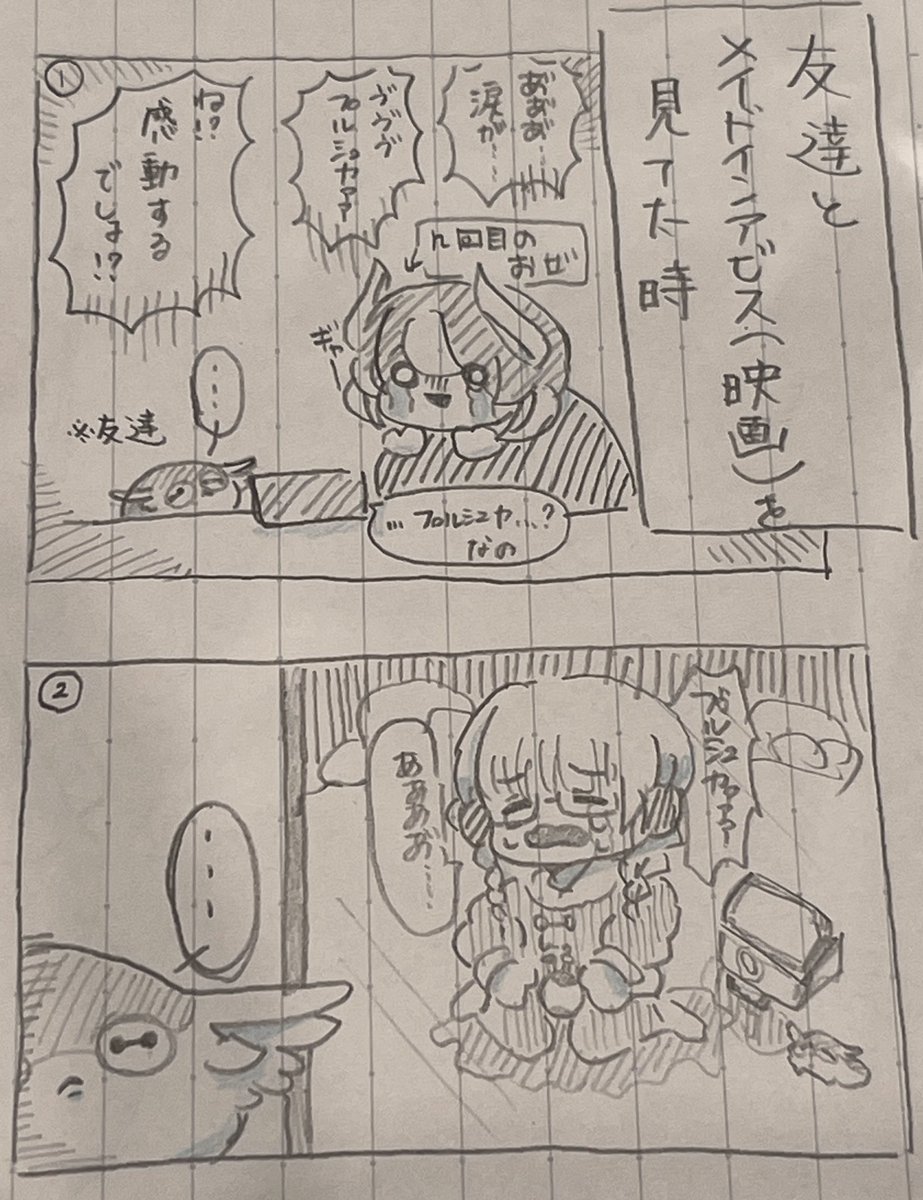 友達と
メイドインアビス(映画)を
見てた時
①
あ゛あ゛あ゛……
涙が……
ヴヴヴ
プルシュカァァ
ね!?
感動する
でしょ!?
n回目の
おぜ
ギャー
……
※友達
…プルシュカ…?
なの
②
プルシュカァァァ
ああああ……
……